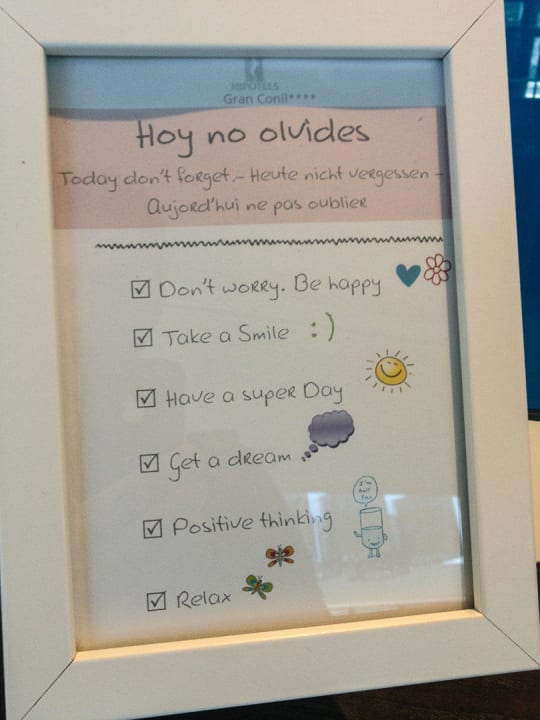 HIPOTELS
Gran Conil****
Hoy no olvides
Today don't forget.- Heute nicht vergessen -
Aujord'hui ne pas oublier
Don't worry. Be happy
Take a Smile :)
Have a super Day
Get a dream
I'm
half
full
Positive thinking
Relax